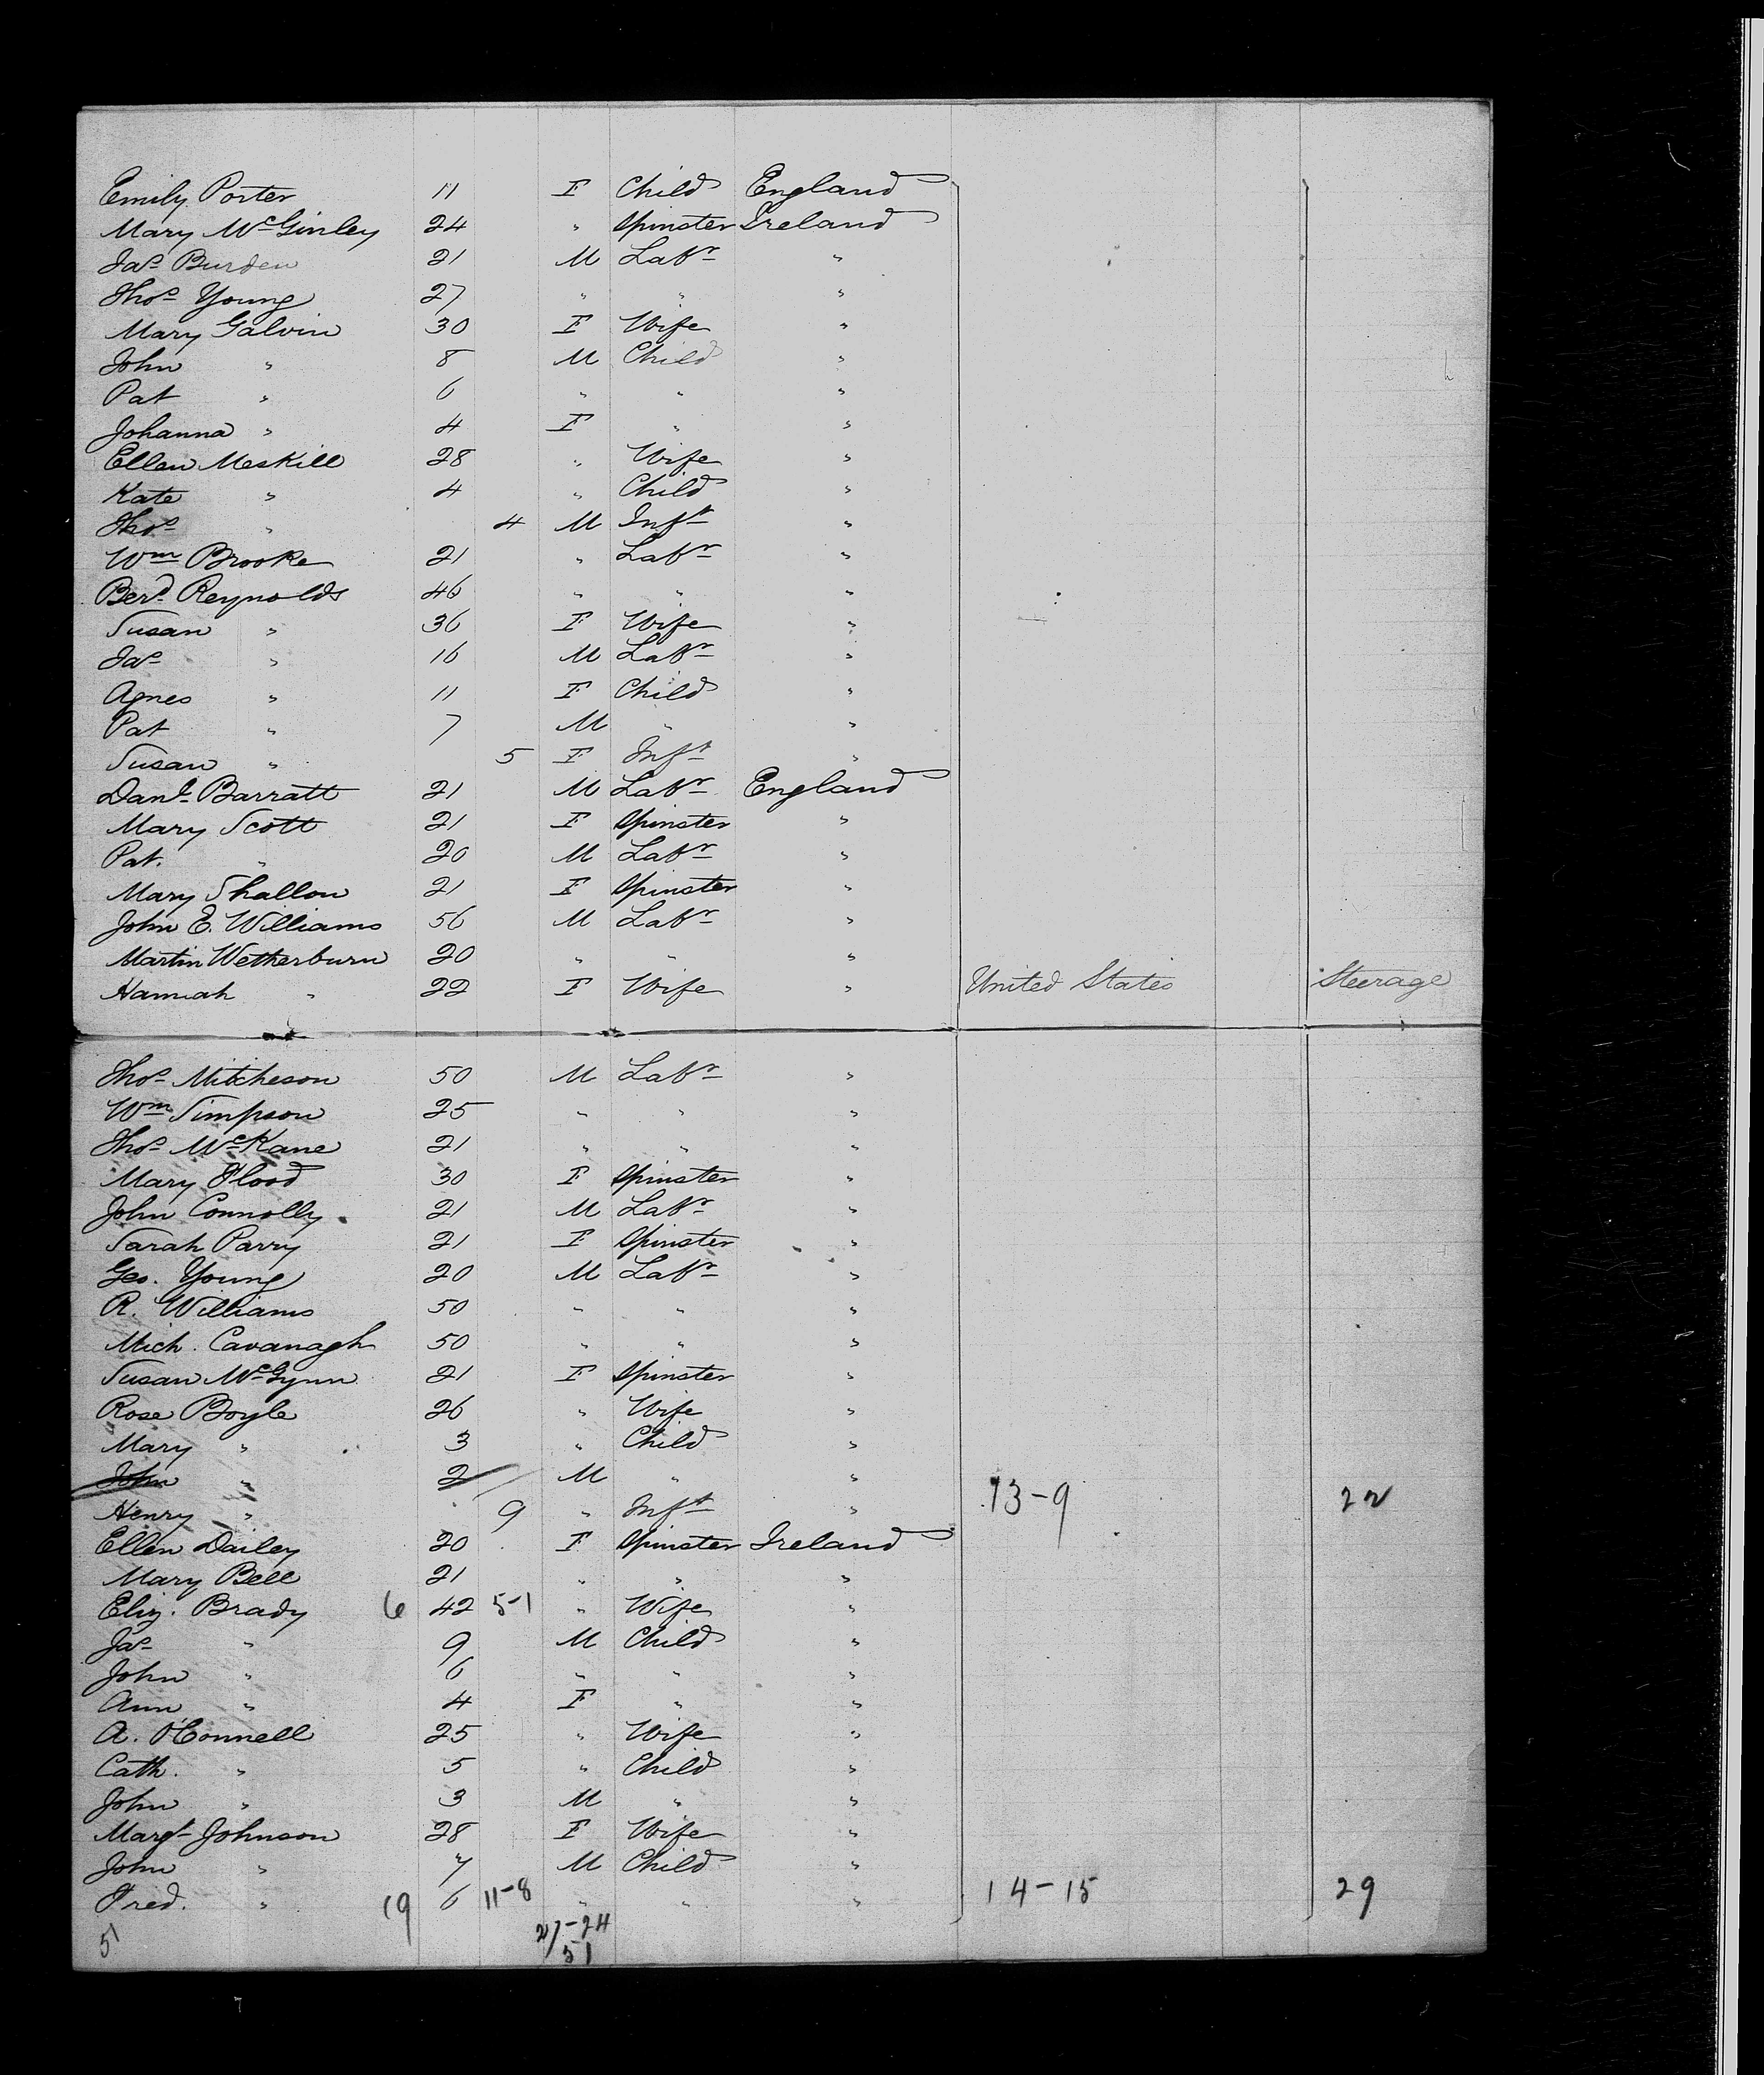 Emily Porter 11 F Child England
Mary McGinley 24 " Spinster Ireland
Jas Burden 21 M Labr "
Thos Young 27 " " "
Mary Galvin 30 F Wife "
John " 8 M Child "
Pat " 6 " " "
Johanna " 4 F " "
Ellen Meskill 28 " Wife "
Kate " 4 " Child "
Thos " 4 M Inft "
Wm Brooke 21 " Labr "
Berd Reynolds 46 " " "
Susan " 36 F Wife "
Jas " 16 M Labr "
Agnes " 11 F Child "
Pat " 7 M " "
Susan " 5 F Inft "
Danl Barratt 21 M Labr England
Mary Scott 21 F Spinster "
Pat. " 20 M Labr "
Mary Shallow 21 F Spinster "
John E. Williams 56 M Labr "
Martin Wetherburn 20 " " "
Hannah " 22 F Wife " United States Steerage
Thos Mitcheson 50 M Labr "
Wm Simpson 25 " " "
Thos McKane 21 " " "
Mary Flood 30 F Spinster "
John Connolly 21 M Labr "
Sarah Parry 21 F Spinster "
Geo. Young 20 M Labr "
R. Williams 50 " " "
Mich. Cavanagh 50 " " "
Susan McGynn 21 F Spinster "
Rose Boyle 26 " Wife "
Mary " 3 " Child "
John " 2 M " "
Henry " 9 " Inft " 13-9 22
Ellen Dailey 20 F Spinster Ireland
Mary Bell 21 " " "
Eliz. Brady 6 42 5-1 " Wife "
Jas " 9 M Child "
John " 6 " " "
Ann " 4 F " "
A. O'Connell 25 " Wife "
Cath. " 5 " Child "
John " 3 M " "
Margt Johnson 28 F Wife "
John " 7 M Child "
Fred. " 19 6 11-8 " " " 14-15 29
51 27-24
51